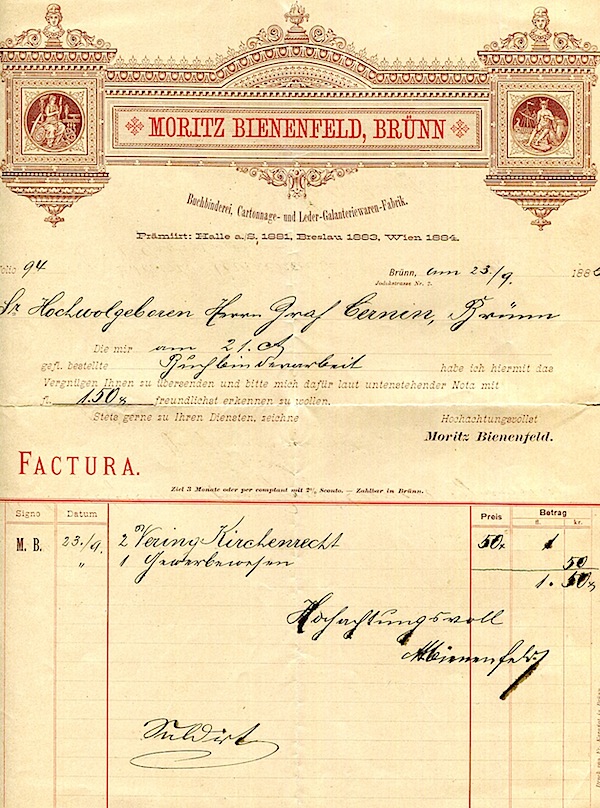 MORITZ BIENENFELD, BRÜNN
Buchbinderei, Cartonnage- und Leder-Galanteriewaren-Fabrik.
Prämiirt: Halle a/S. 1881, Breslau 1883, Wien 1884.
Folio 94
Brünn, am 23./9. 188
Jodokstrasse Nr. 7.
Sr Hochwolgeboren Herrn Graf Cernen, Brünn
Die mir am 21. ct
gefl. bestellte Buchbinderarbeit habe ich hiermit das
Vergnügen Ihnen zu übersenden und bitte mich dafür laut untenstehender Nota mit
fl. 1.50 x freundlichst erkennen zu wollen.
Stets gerne zu Ihren Diensten, zeichne Hochachtungsvollst
Moritz Bienenfeld.
FACTURA.
Ziel 3 Monate oder per comptant mit 2% Sconto. — Zahlbar in Brünn.
Signo Datum Preis Betrag
fl. kr.
M. B. 23./9. 2 Vering Kirchenrecht 50x 1
" 1 Gewerbewesen 50
1. 50x
Hochachtungsvoll
MBienenfeld
Saldirt